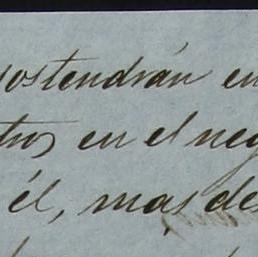 sostendrán en
en el neg
él, mas de